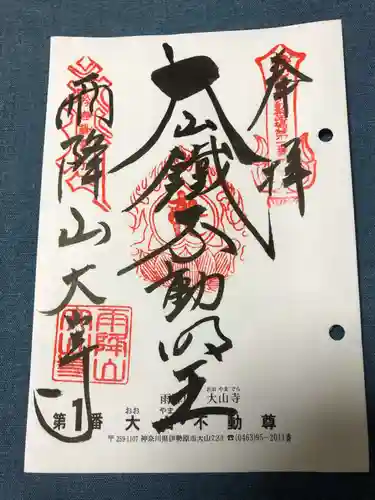 奉拝
大山鐵不動明王
雨降山大山寺
雨降山
おおやまでら
大山寺
おお やま
第1番 大 不動尊
〒259-1107 神奈川県伊勢原市大山724 ☎(0463)95-2011番